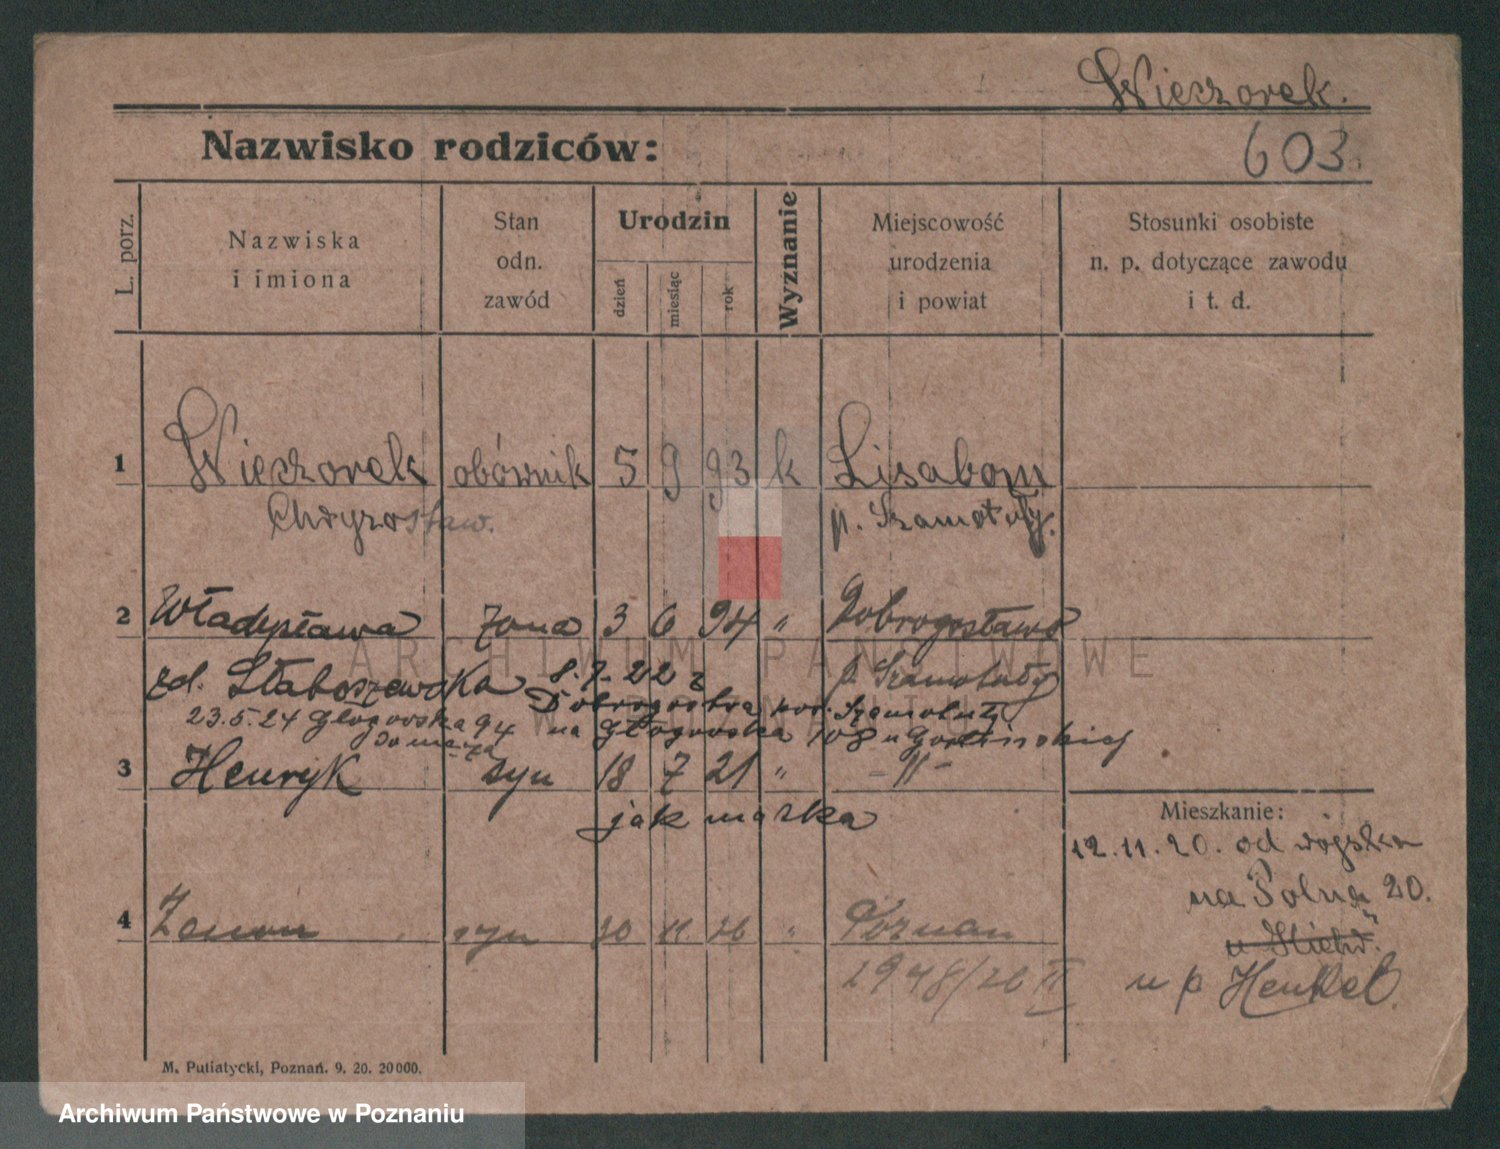 Wieczorek.
603.
Nazwisko rodziców:
L. porz.
Nazwiska
i imiona
Stan
odn.
zawód
Urodzin
dzień
miesiąc
rok
Wyznanie
Miejscowość
urodzenia
i powiat
Stosunki osobiste
n. p. dotyczące zawodu
i t. d.
1 Wieczorek obównik 5 9 93 k Lisabom
Chryzostaw. p. Szamotuły.
2 Władysława żona 3 6 94 " Dobrogostawo
zd. Słaboszewska 8.7.22 z p. Szamotuły
23.5.24 Głogowska 94 Dobrogostwa pow. Szamotuły
do męża na Głogowska 108 u Gorlińskiej
3 Henryk syn 18 7 21 " - " -
jak matka
Mieszkanie:
12.11.20. od wojska
na Polna 20.
4 Zenon syn 20 11. 26 " Poznan
2948/26 II
u p Henkel.
M. Putiatycki, Poznań. 9. 20. 20000.
ARCHIWUM PAŃSTWOWE
W POZNANIU
Archiwum Państwowe w Poznaniu